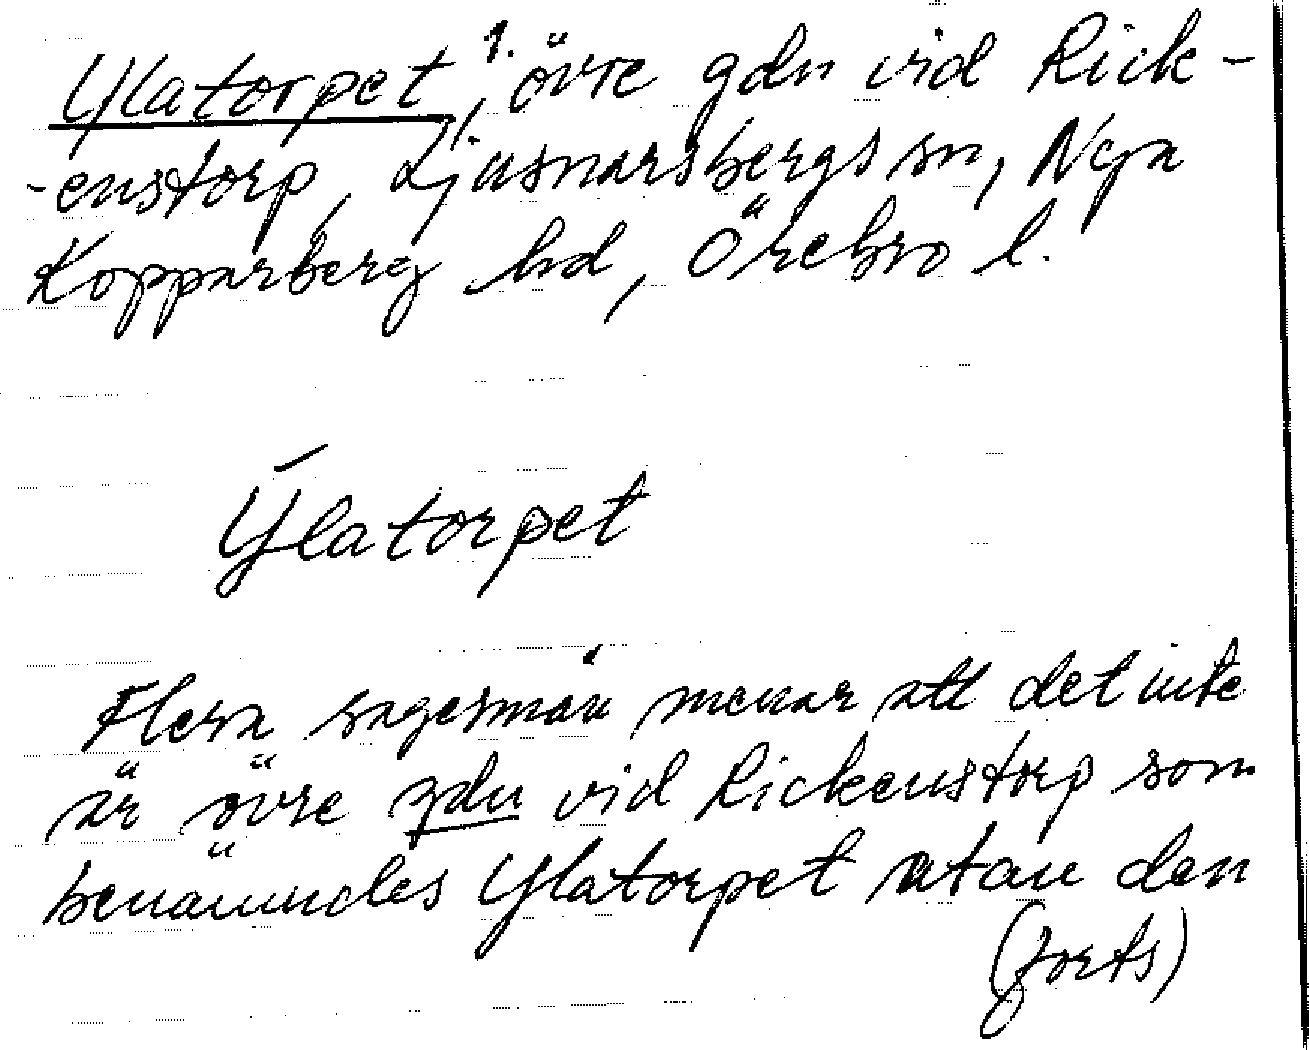 Ylatorpet 1., övre gdn vid Rick-
-enstorp, Ljusnarsbergs sn, Nya
Kopparberg hd, Örebro l.
Ȳlatorpet
Flera sagesmän menar att det inte
är övre gdn vid Rickenstorp som
benämndes Ylatorpet utan den
(forts)